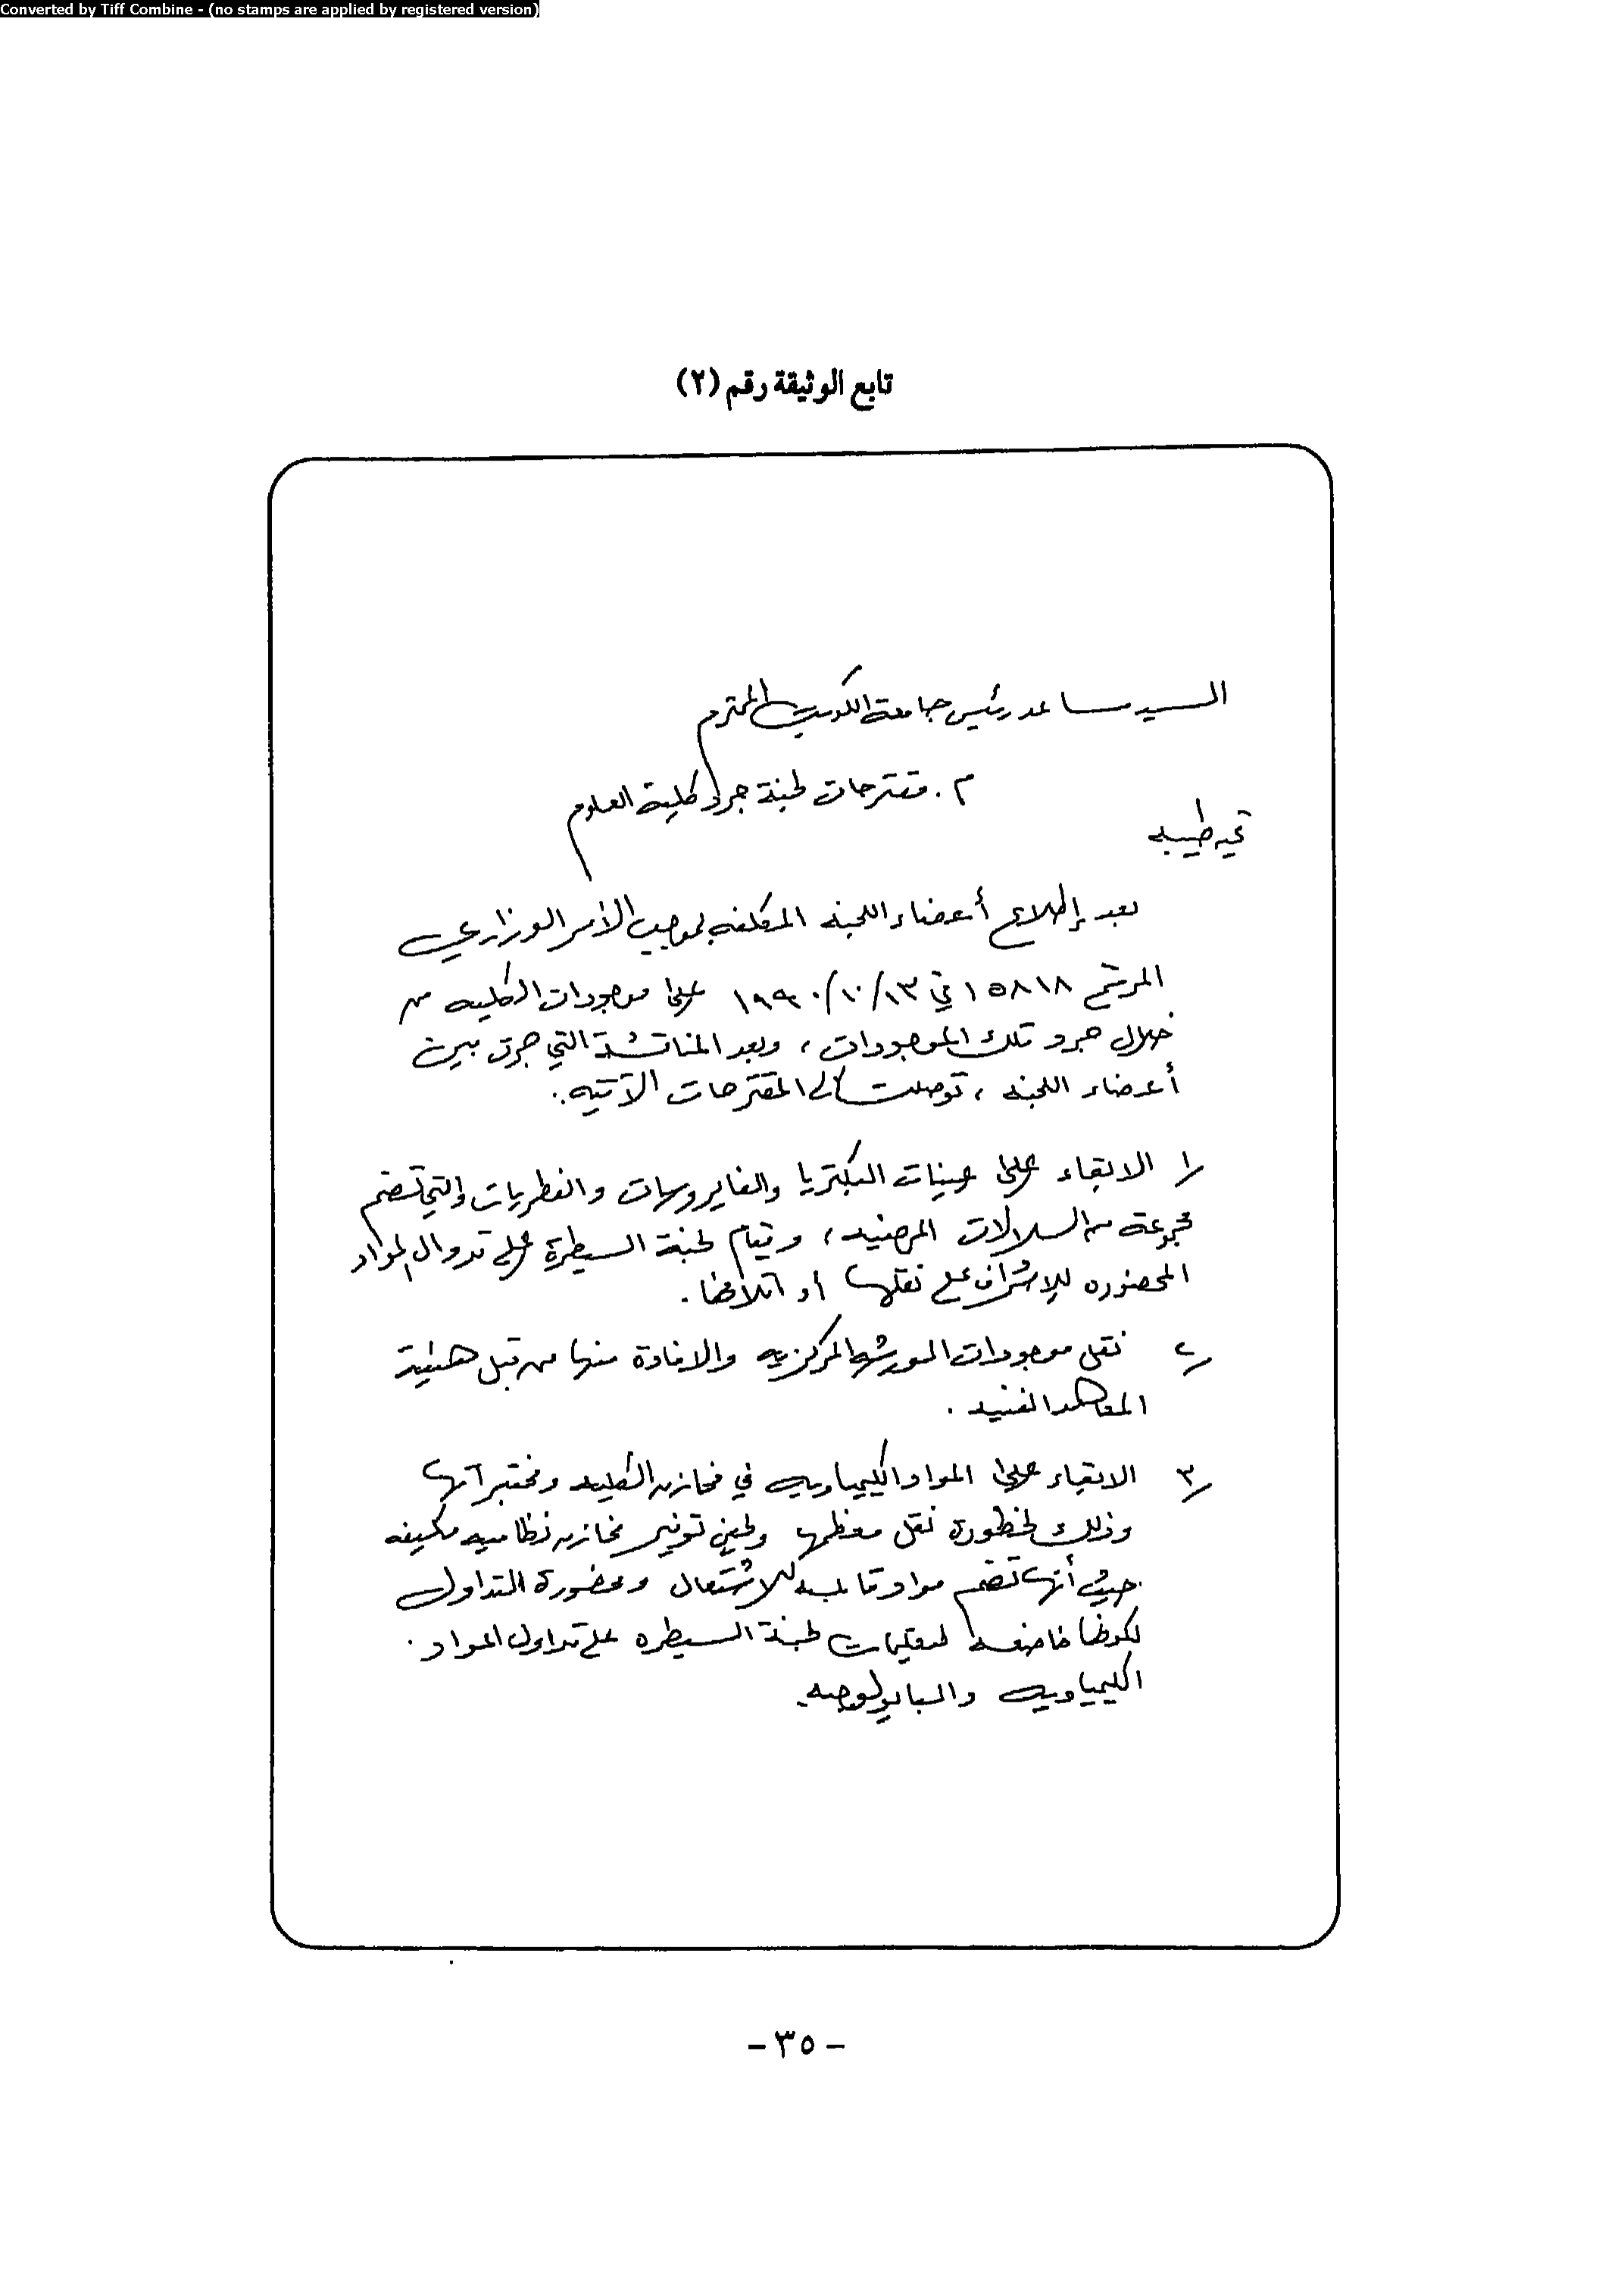 Converted by Tiff Combine - (no stamps are applied by registered version)
تابع الوثيقة رقم (٢)
السيد مساعد رئيس جامعة الكويت المحترم
م . مقترحات لجنة جرد كلية العلوم
تحيه طيبه
بعد إطلاع أعضاء اللجنه المكلفه بموجب الأمر الوزاري
المرقم ١٥٨١٨ في ١٩٩٠/١٠/١٣ على موجودات الكليه من
خلال جرد تلك الموجودات ، وبعد المناقشة التي جرت بين
أعضاء اللجنه ، توصلت الى المقترحات الآتيه :.
١/ الابقاء على عينات البكتريا والفايروسات والفطريات والتي تضم
مجموعة من السلالات المرضيه ، وقيام لجنة السيطرة على تدوال المواد
المحضوره للإشراف على نقلها أو اتلافها .
٢/ نقل موجودات الورشه المركزيه والافادة منها من قبل هيئة
المعاهد الفنيه .
٣/ الابقاء على المواد الكيمياويه في مخازن الكليه ومختبراتها
وذلك لخطورة نقل معظمها ولحين توفير مخازن نظاميه مكيفه
حيث أنها تضم مواد قابله للاشتعال ومحضورة التداول
لكونها خاضعه لتعليمات لجنة السيطره على تداول المواد .
الكيمياويه والبايولوجيه
- ٣٥ -